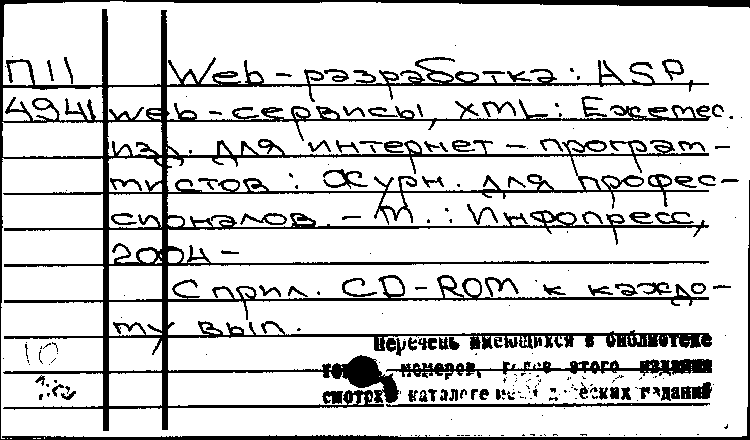 П11 Web-разработка: ASP,
4941 web-сервисы, XML: Ежемес.
изд. для интернет-програм-
мистов: Журн. для профес-
сионалов. - М.: Инфопресс,
2004-
С прил. CD-ROM к каждо-
му вып.
10
Перечень имеющихся в библиотеке
номеров, этого издания
смотри каталоге изданий